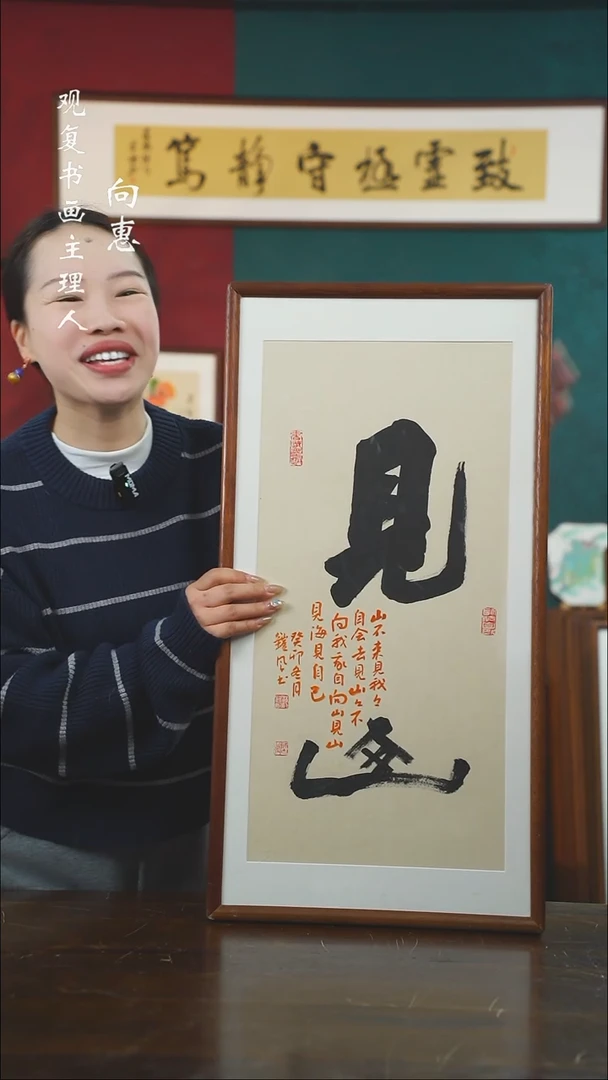 观复书画主理人
向惠
致靈極守静篤
見山
山不来見我々
自会去見山々不
向我我自向山見山
見海見自己
癸卯冬月